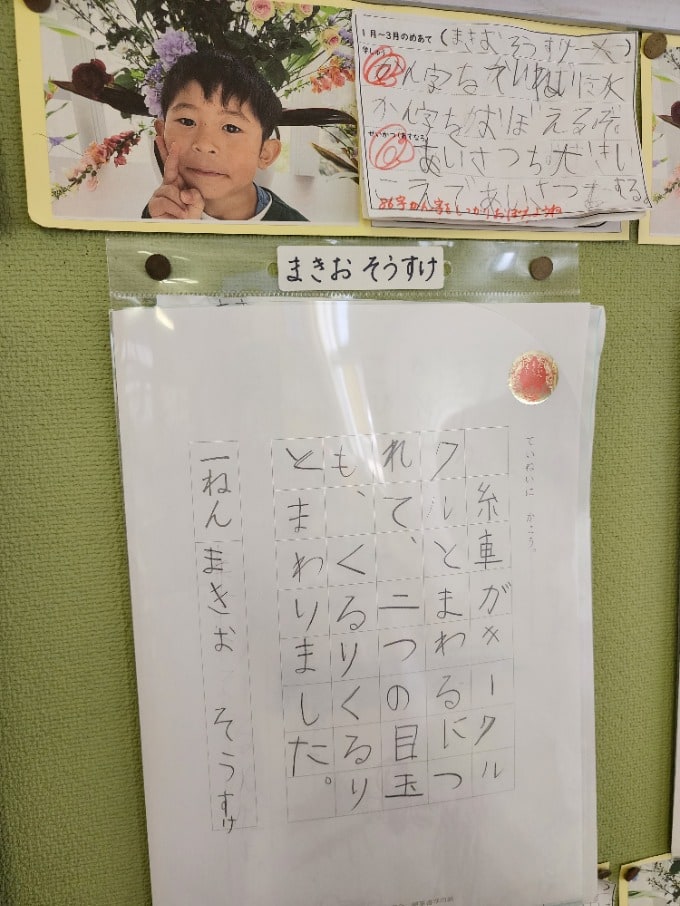 1月~3月のめあて(まきおそうすけ)
学しゅう
かん字をていねいに
かん字をおぼえるぞ
せいかつ(あすなろ)
あいさつも大きい
こえであいさつをする。
まきお そうすけ
ていねいに かこう。
糸車がキークル
クルとまわるにつ
れて、二つの目玉
も、くるりくるり
とまわりました。
一ねん まきお そうすけ